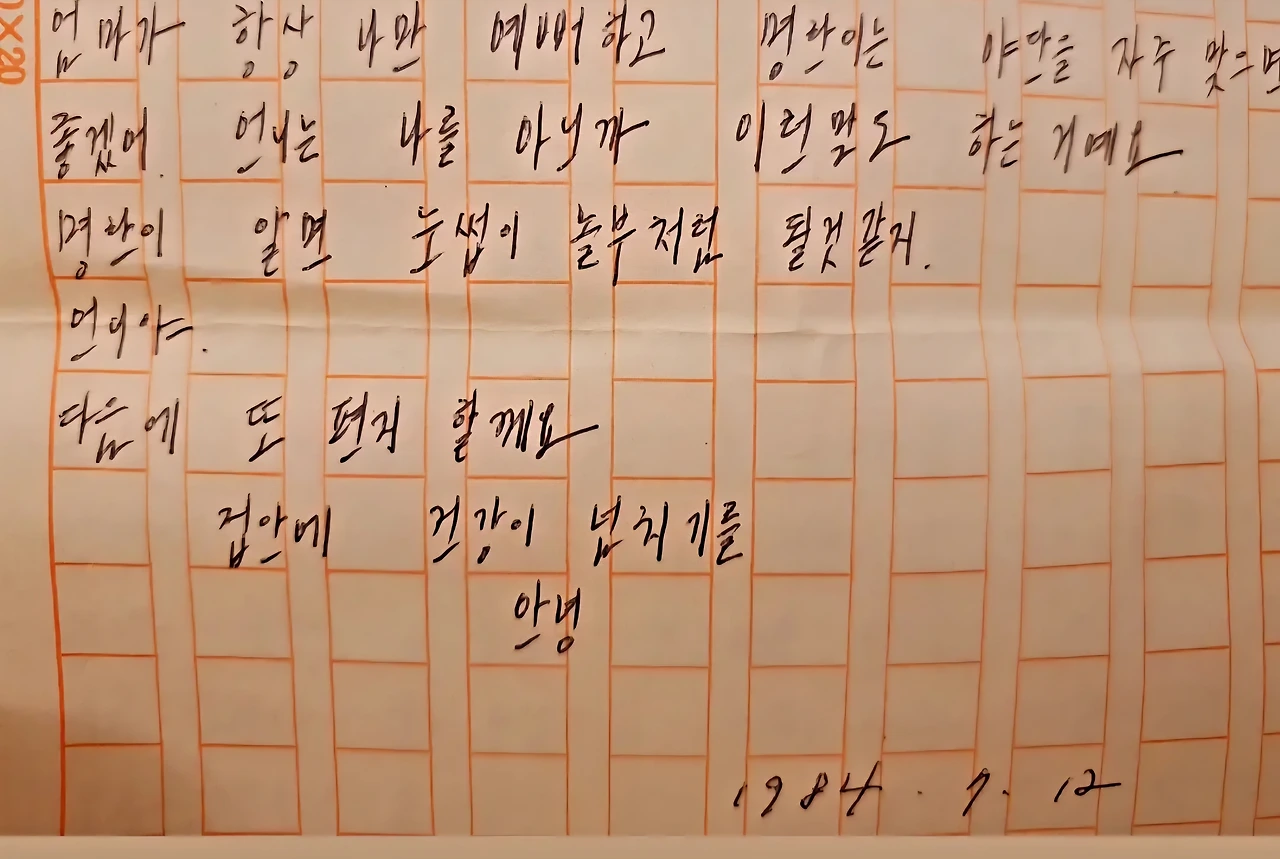 0X20
엄마가 항상 나만 예뻐하고 명란이는 야단을 자주 맞으면
좋겠어. 언니는 나를 아니까 이런말도 하는 거예요
명란이 알면 눈썹이 놀부처럼 될것 같지.
언니야.
다음에 또 편지 할께요
집안에 건강이 넘치기를
안녕
1984. 7. 12